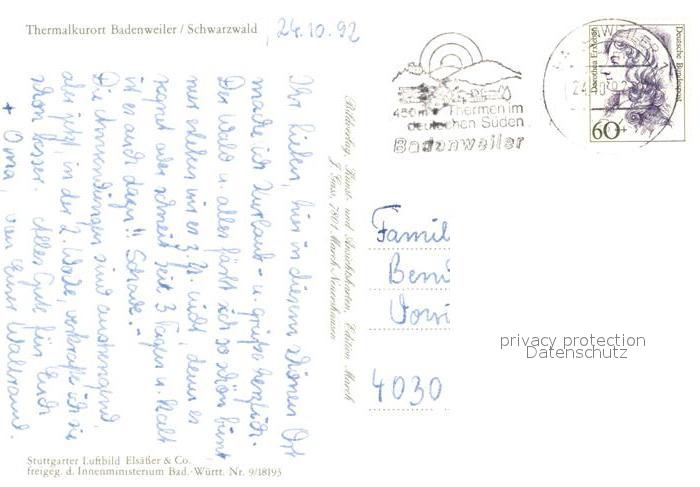 Thermalkurort Badenweiler / Schwarzwald
24.10.92
Ihr Lieben, hier in diesem schönen Ort
mache ich Urlaub u. grüße herzlich.
Der Wald u. alles färbt sich so schön bunt
nur erleben wir es z. Zt. nicht, denn es
regnet oder schneit seit 3 Tagen u. kalt
ist es auch dazu!! Schade. -
Die Anwendungen sind anstrengend,
aber jetzt, in der 2. Woche, verkrafte ich sie
schon besser. Alles Gute für Euch
+ Oma, von Eurer Waltraud.
Stuttgarter Luftbild Elsäßer & Co.
freigeg. d. Innenministerium Bad.-Württ. Nr. 9/18193
Bilderverlag Kunst- und Ansichtskarten, Edition March
J. Gass, 7801 March-Neuershausen
450 m Thermen im
deutschen Süden
Badenweiler
BADENWEILER 1
24.10.92
Dorothea Erxleben
Deutsche Bundespost
60
Famil
4030
privacy protection
Datenschutz